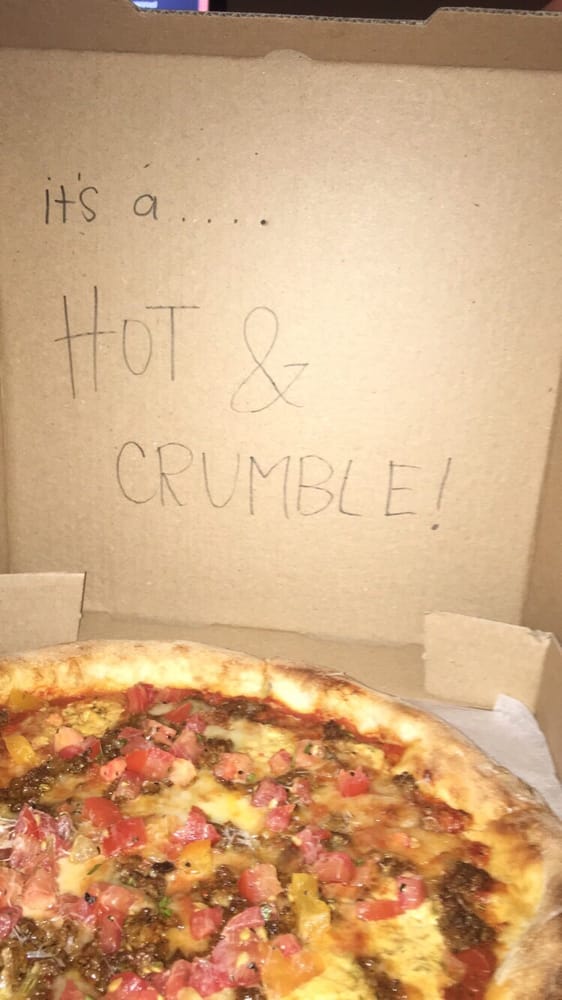 it's a.....
HOT &
CRUMBLE!